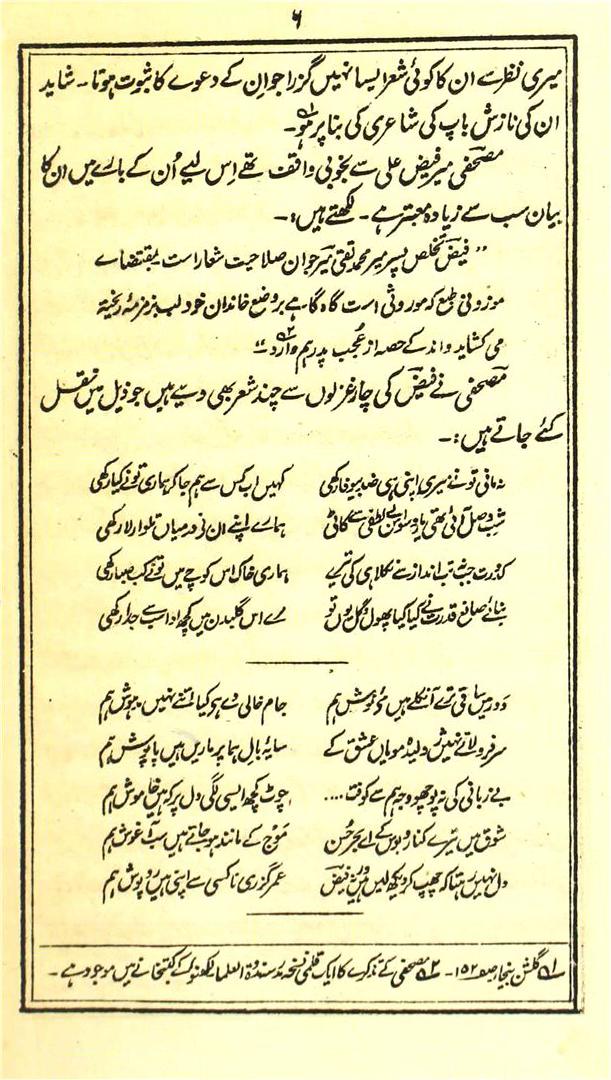 ۶
میری نظر سے ان کا کوئی شعر ایسا نہیں گزرا جو ان کے دعوے کا ثبوت ہوتا۔ شاید
ان کی نازش باپ کی شاعری کی بنا پر ہو۱؎۔
مصحفی میر فیض علی سے بخوبی واقف تھے اِس لیے اُن کے بارے میں ان کا
بیان سب سے زیادہ معتبر ہے۔ لکھتے ہیں:۔
”فیضؔ تخلص پسر میر محمد تقی میرؔ جوان صلاحیت شعار است بمقتضائے
موزونی طبع کہ موروثی است گاہ گاہے بروضع خاندان خود لب بزمزمۂ ریختہ
می کشاید و اندکے حصہ از عُجب پدر ہم دارد۲؎“
مصحفی نے فیضؔ کی چار غزلوں سے چند شعر بھی دیے ہیں جو ذیل میں نقل
کئے جاتے ہیں:۔
نہ مانی تو نے میری اپنی ہی ضد بیوفا رکھی کہیں اب کس سے ہم جا کر ہماری تو نے کیا رکھی
شب وصل آئی بھی یارو سو اس بے لطفی سے کاٹی ہمارے اپنے ان نے درمیاں تلوار لا رکھی
کدورت جب تب انداز سے نکلا ہی کی تیرے ہماری خاک اس کوچے میں تو نے کب صبا رکھی
بنائے صانع قدرت نے کیا کیا پھول و گل یوں تو مرے اس گلبدن میں کچھ ادا سب سے جدا رکھی
دَور میں ساقی ترے آ نکلے ہیں مے نوش ہم جام خالی دے ہے کیا اتنے نہیں بیہوش ہم
سر فرو لاتے نہیں ژولیدہ مویاں عشق کے سایۂ بال ہما پر ماریں ہیں پاپوش ہم
بے زبانی کی نہ پوچھو وجہ ہم سے کوفت .... چوٹ کچھ ایسی لگی دل پر کہ ہیں خاموش ہم
شوق میں تیرے کنار و بوس کے اے بحر حسن موج کے مانند ہو جاتے ہیں سب آغوش ہم
دل نہیں رہتا کہ چھپ کر دیکھ لیں ہیں ورنہ فیضؔ عمر گزری ناکسی سے اپنی ہیں روپوش ہم
۱؎ گلشن بیخار صفحہ ۱۵۲۔ ۲؎ مصحفی کے تذکرے کا ایک قلمی نسخہ مدرسہ ندوۃ العلما لکھنؤ کے کتبخانے میں موجود ہے۔